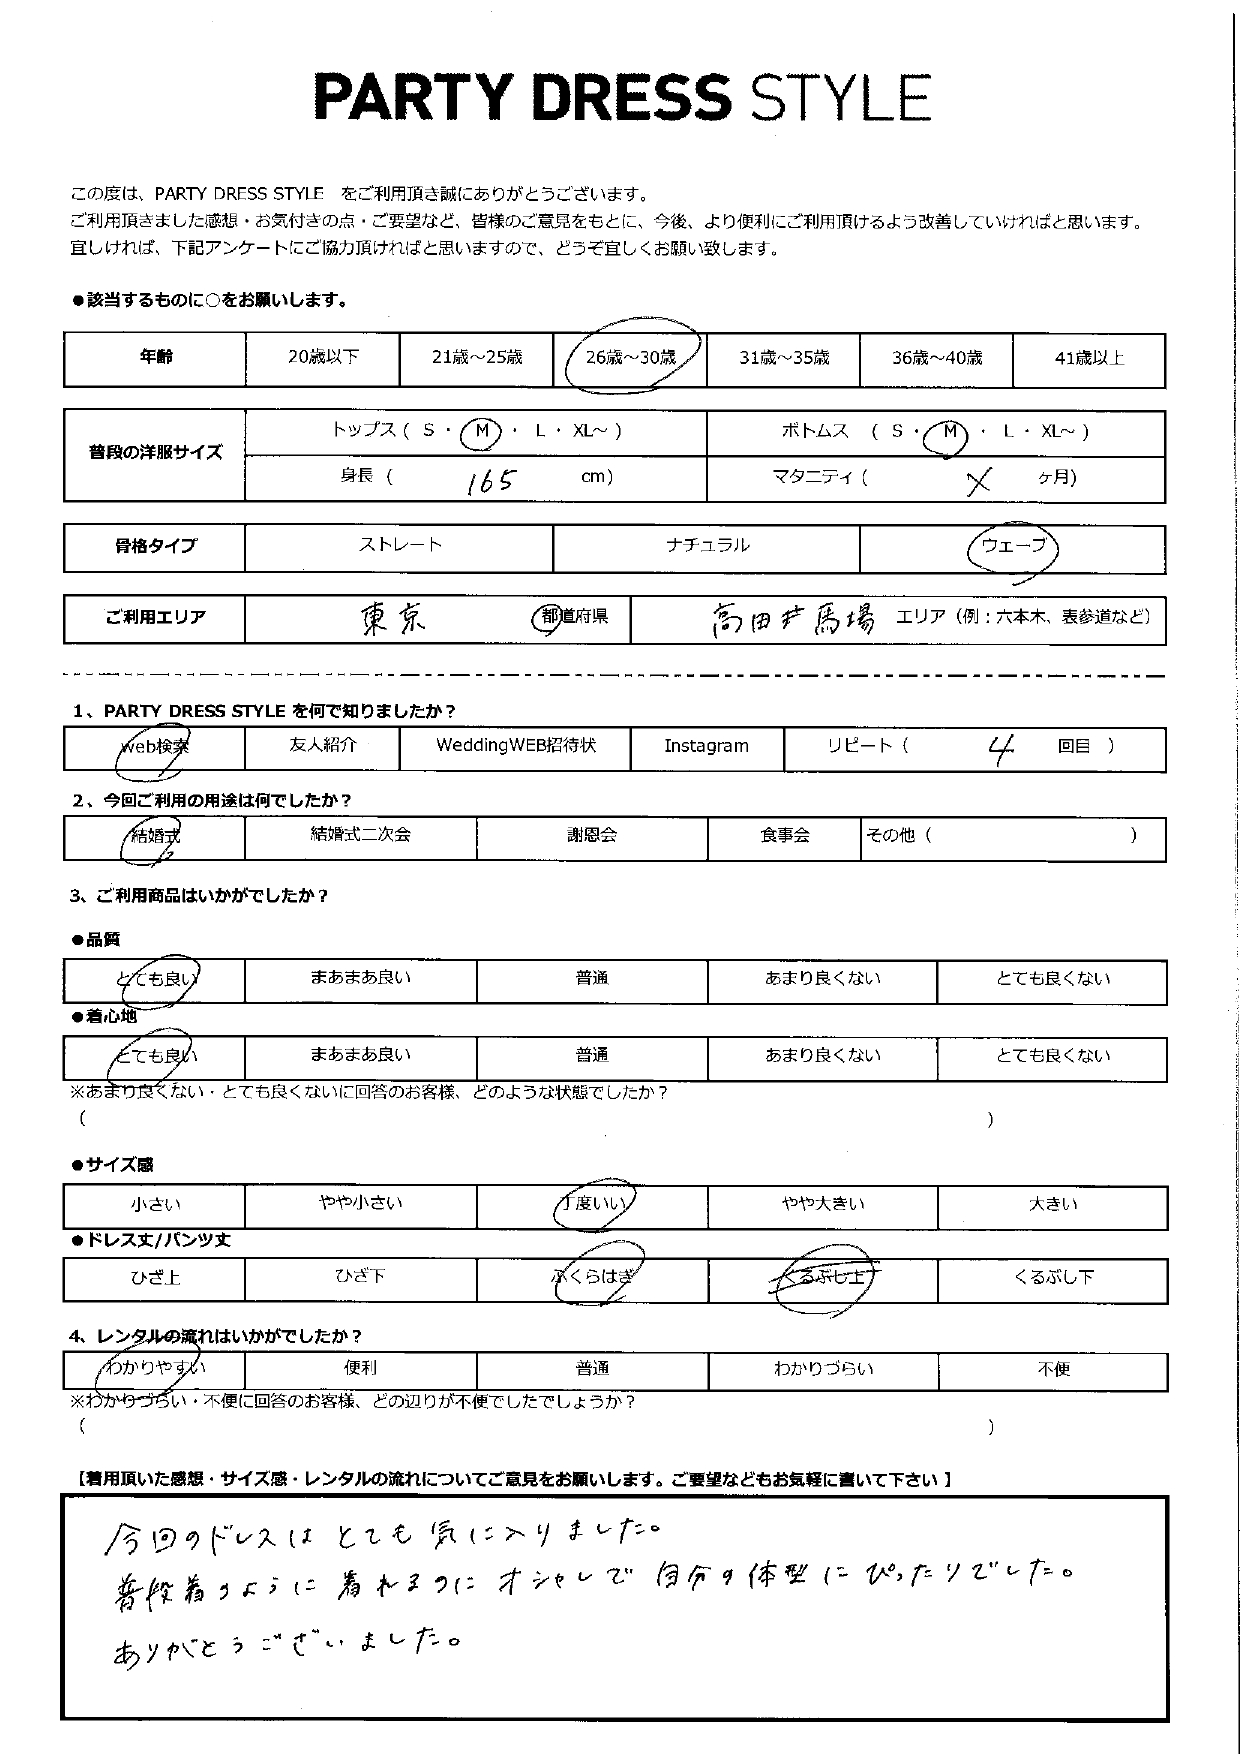 PARTY DRESS STYLE
この度は、PARTY DRESS STYLE をご利用頂き誠にありがとうございます。
ご利用頂きました感想・お気付きの点・ご要望など、皆様のご意見をもとに、今後、より便利にご利用頂けるよう改善していければと思います。
宜しければ、下記アンケートにご協力頂ければと思いますので、どうぞ宜しくお願い致します。
●該当するものに○をお願いします。
年齢 20歳以下 21歳～25歳 26歳～30歳 31歳～35歳 36歳～40歳 41歳以上
普段の洋服サイズ
トップス ( S ・ M ・ L ・ XL～ ) ボトムス ( S ・ M ・ L ・ XL～ )
身長 ( 165 cm) マタニティ ( X ヶ月)
骨格タイプ ストレート ナチュラル ウェーブ
ご利用エリア 東京 都道府県 高田馬場 エリア（例：六本木、表参道など）
1、PARTY DRESS STYLE を何で知りましたか？
web検索 友人紹介 WeddingWEB招待状 Instagram リピート ( 4 回目 )
2、今回ご利用の用途は何でしたか？
結婚式 結婚式二次会 謝恩会 食事会 その他 ( )
3、ご利用商品はいかがでしたか？
●品質
とても良い まあまあ良い 普通 あまり良くない とても良くない
●着心地
とても良い まあまあ良い 普通 あまり良くない とても良くない
※あまり良くない・とても良くないに回答のお客様、どのような状態でしたか？
( )
●サイズ感
小さい やや小さい 丁度いい やや大きい 大きい
●ドレス丈/パンツ丈
ひざ上 ひざ下 ふくらはぎ くるぶし上 くるぶし下
4、レンタルの流れはいかがでしたか？
わかりやすい 便利 普通 わかりづらい 不便
※わかりづらい・不便に回答のお客様、どの辺りが不便でしたでしょうか？
( )
【着用頂いた感想・サイズ感・レンタルの流れについてご意見をお願いします。ご要望などもお気軽に書いて下さい 】
今回のドレスは とても 気に入りました。
普段着のように 着れるのに オシャレで 自分の体型に ぴったりでした。
ありがとうございました。